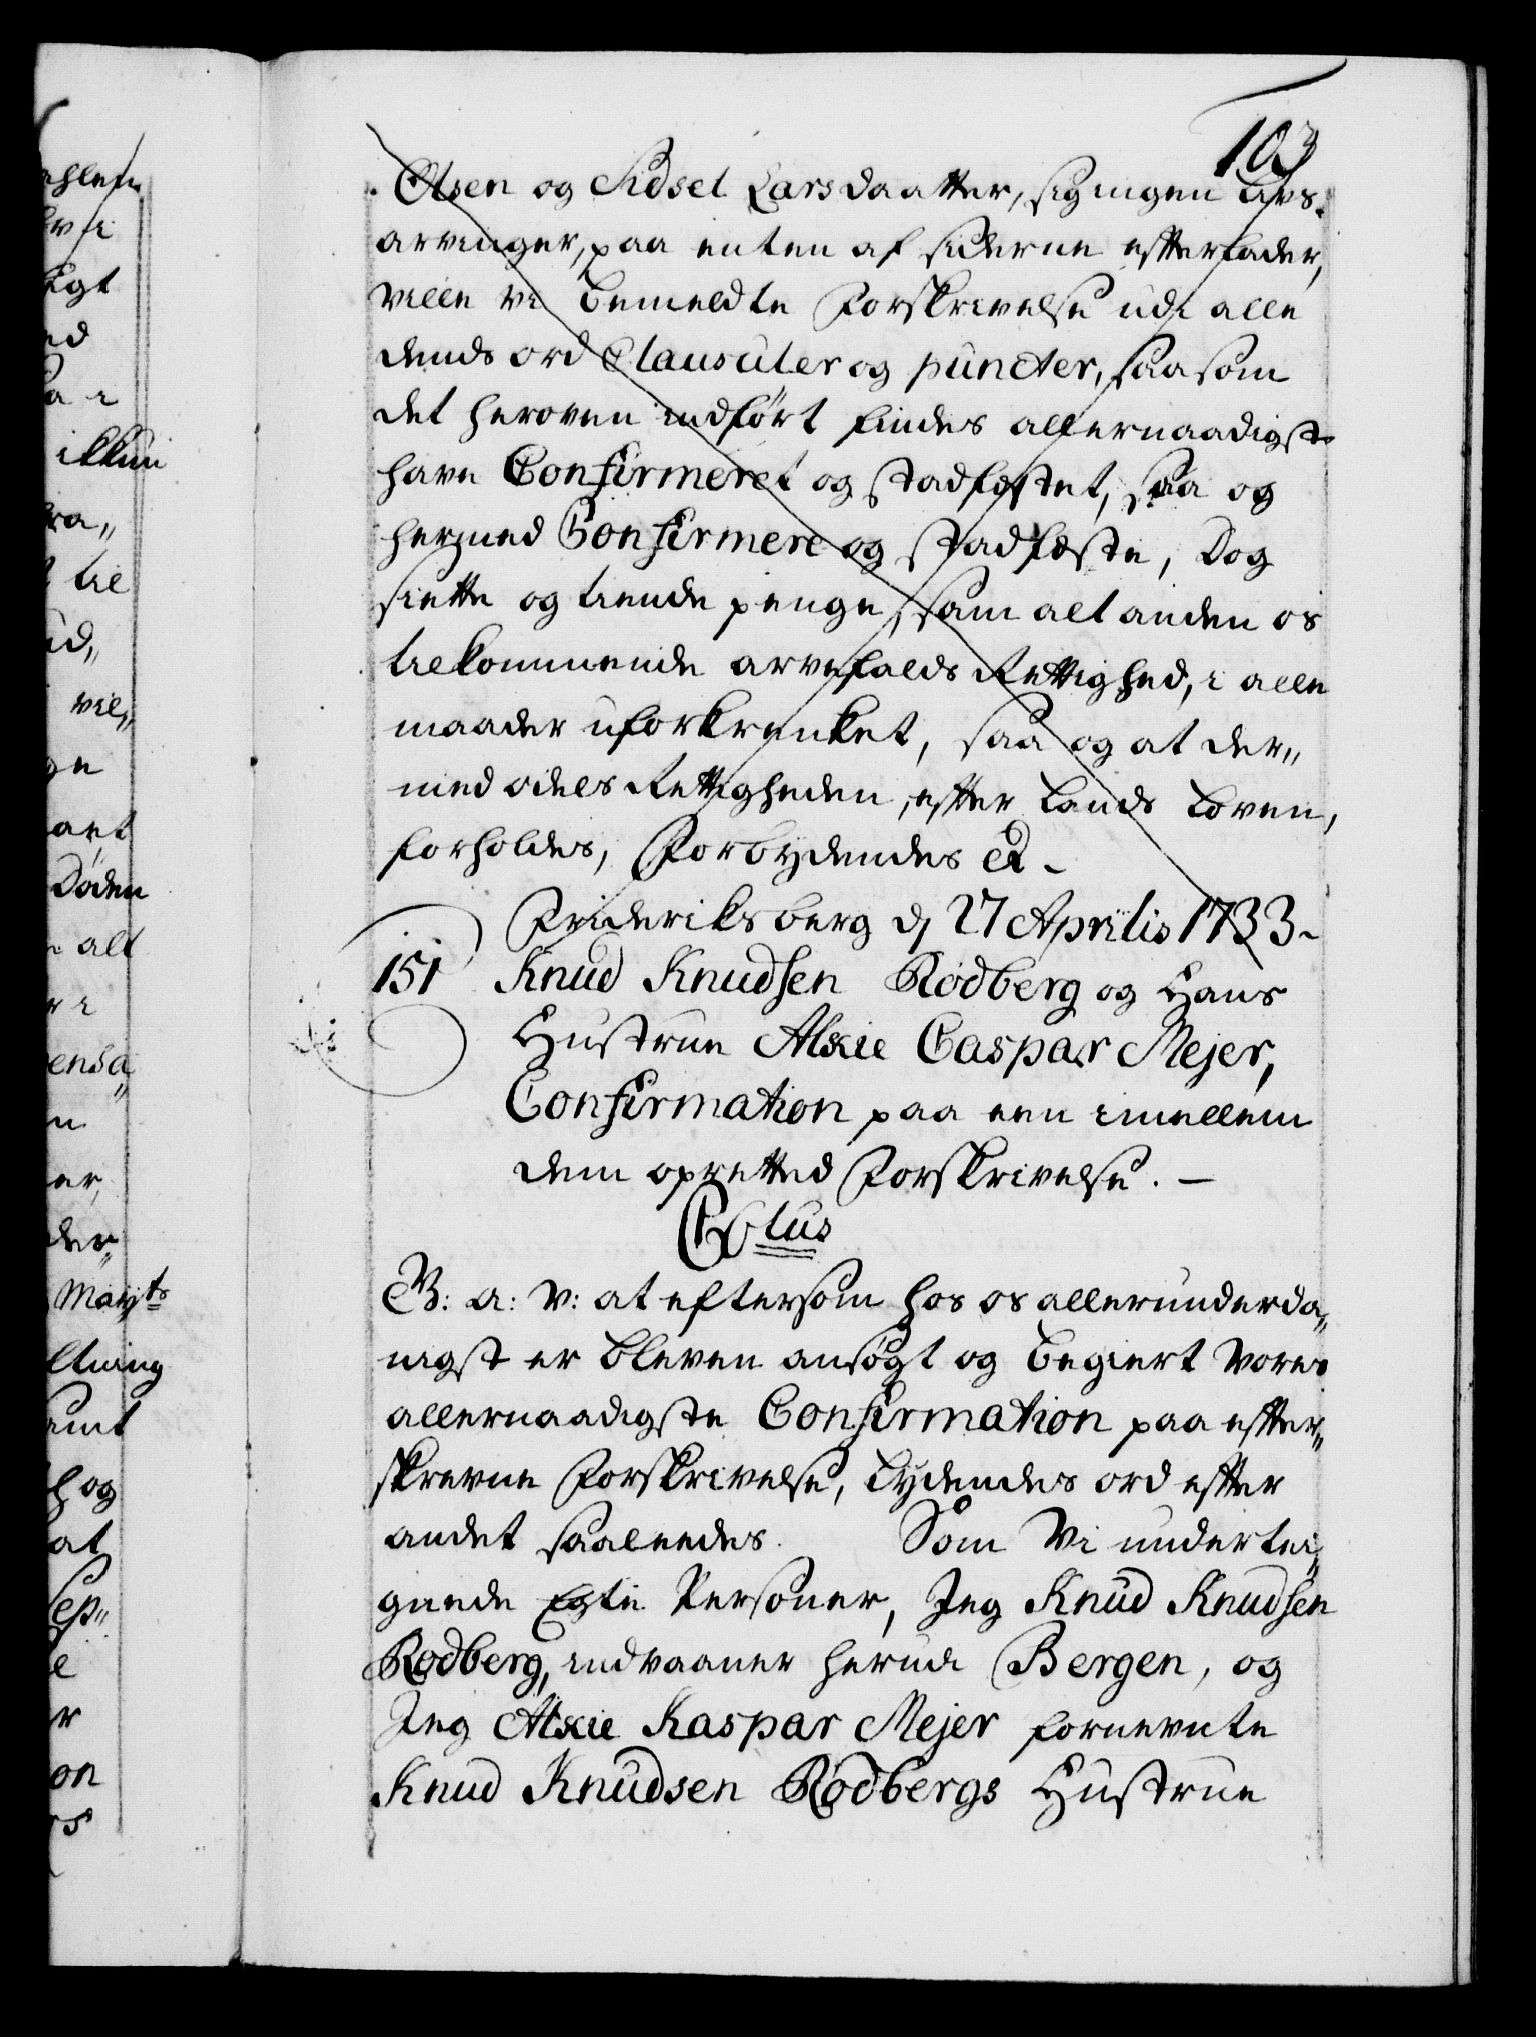 103
Olsen og Sidsel Larsdaatter, sig ingen Livs-
arvinger, paa enten af siderne efterlader,
ville vi bemeldte Forskrivelse udi alle
dends ord Clausuler og puncter, saasom
det heroven indført findes allernaadigst
have Confirmeret og stadfæstet, saa og
hermed Confirmere og stadfæste, Dog
siette og tiende penge, sam alt anden os
tilkommende arvefalds Rettighed, i alle
maader uforkrenket, saa og at der„
med odels Rettigheden, efter Lands Loven,
forholdes, Forbydendes et
Frideriksberg d 27 Aprilis 1733.
151 Knud Knudsen Rødberg og Hans
Hustrue Alxie Caspar Mejer,
Confirmation paa een imellem
dem opretted Forskrivelse. —
C6tus
G: a: V: at eftersom hos os allerunderda„
nigst er bleven ansøgt og begiert Vores
allernaadigste Confirmation paa efter„
skrevne Forskrivelse, Lydendes ord efter
andet saaleedes. Som Vi undertei„
gnede Egte Personer, Jeg Knud Knudsen
Rødberg, indvaaner herudi Bergen, og
Jeg Alxie Kaspar Mejer fornevnte
Knud Knudsen Rødbergs Hustrue